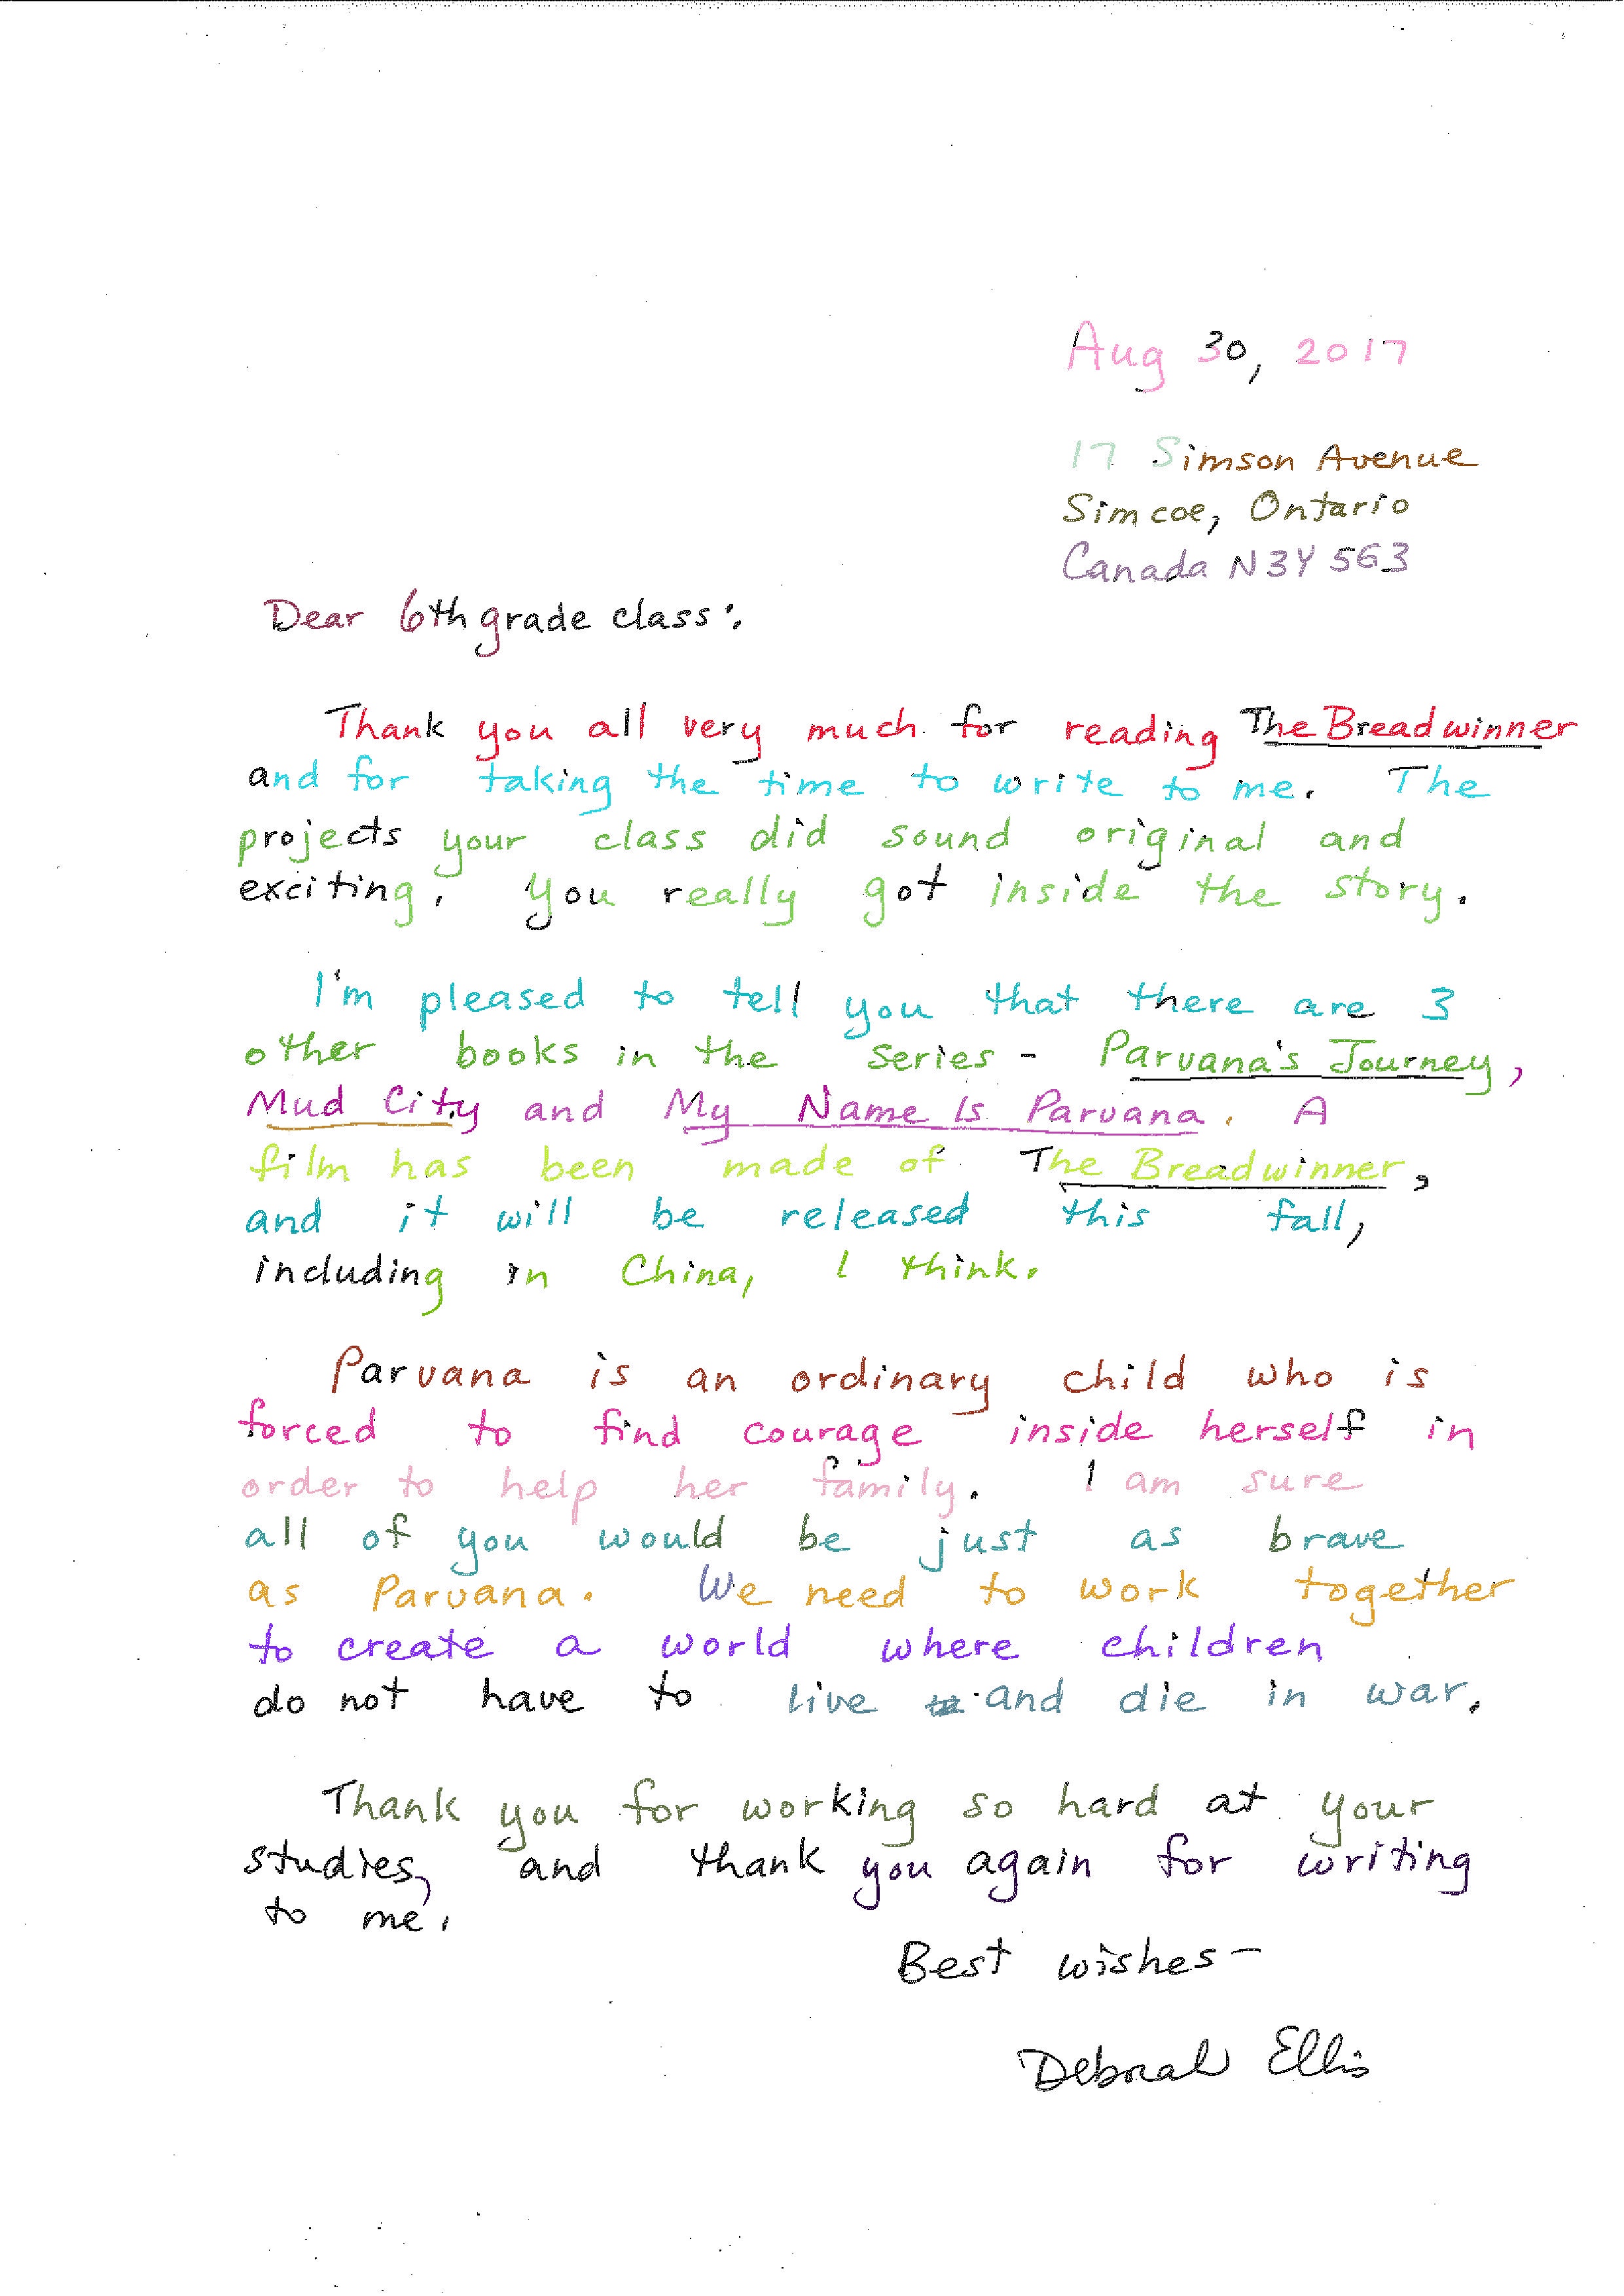 Aug 30, 2017
17 Simson Avenue
Simcoe, Ontario
Canada N3Y 5G3
Dear 6th grade class:
Thank you all very much for reading The Breadwinner
and for taking the time to write to me. The
projects your class did sound original and
exciting. You really got inside the story.
I'm pleased to tell you that there are 3
other books in the series - Parvana's Journey,
Mud City and My Name Is Parvana. A
film has been made of The Breadwinner,
and it will be released this fall,
including in China, I think.
Parvana is an ordinary child who is
forced to find courage inside herself in
order to help her family. I am sure
all of you would be just as brave
as Parvana. We need to work together
to create a world where children
do not have to live and die in war.
Thank you for working so hard at your
studies, and thank you again for writing
to me.
Best wishes-
Deborah Ellis